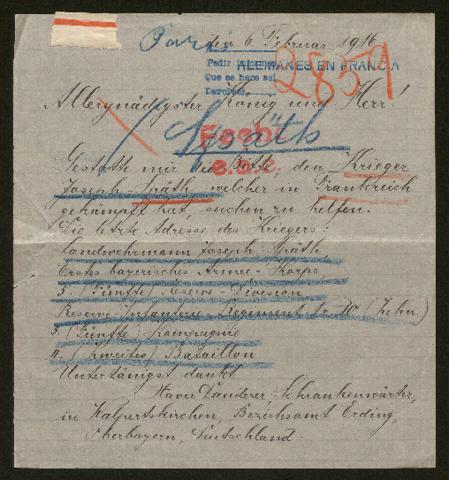 Paris
den 6. Februar 1916
Pedir informes
ALEMANES EN FRANCIA
Que se hace así
Devolver
28579
Allergnädigster König und Herr!
Späth
Gestatte mir die Bitte, den Krieger
Joseph Späth, welcher in Frankreich
gekämpft hat, suchen zu helfen.
Die letzte Adresse des Kriegers:
Landwehrmann Joseph Späth
Erstes bayerisches Armee-Korps
5. (Fünfte) Reserve-Division
Reserve-Infanterie-Regiment Nr. 10 (Zehn)
5. (Fünfte) Kompagnie
II. (Zweites) Bataillon
Untertänigst dankt
Xaver Danderer, Schrankenwärter,
in Kalpertskirchen, Bezirksamt Erding,
Oberbayern, Deutschland.